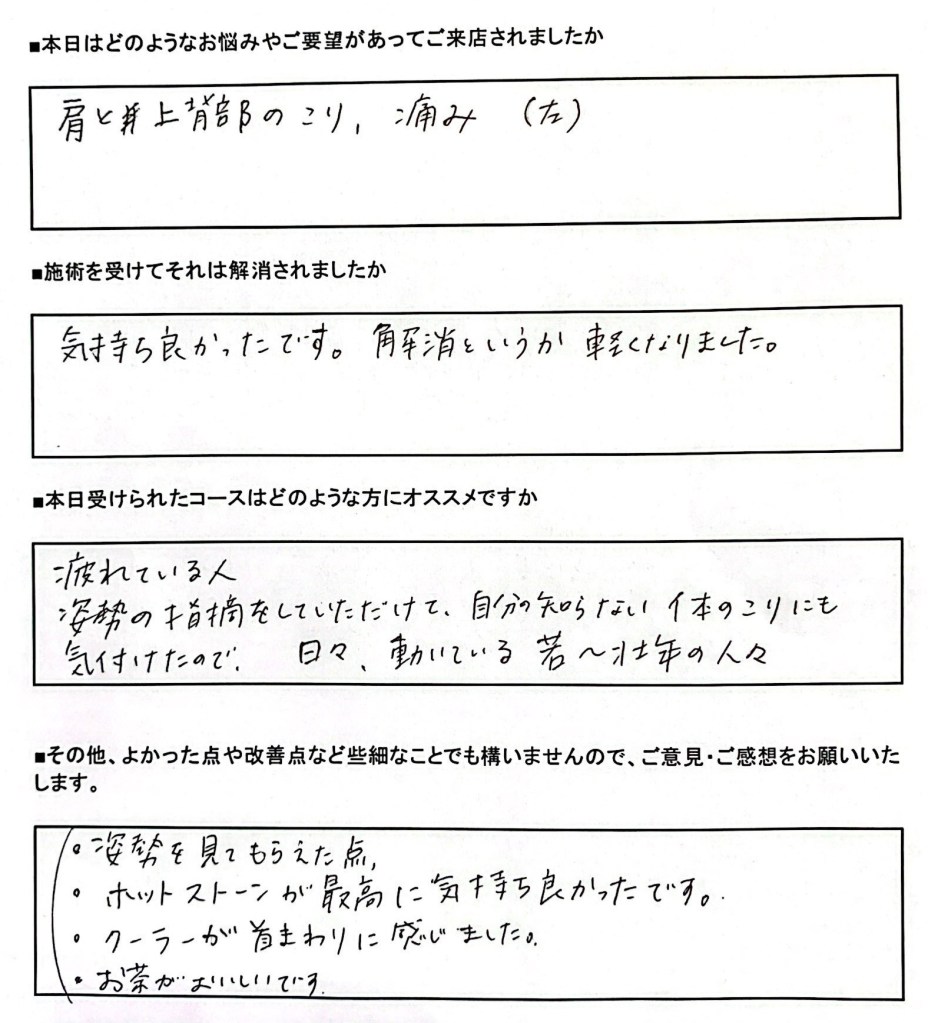 ■本日はどのようなお悩みやご要望があってご来店されましたか
肩と 上背部のこり、痛み (左)
■施術を受けてそれは解消されましたか
気持ち良かったです。解消というか 軽くなりました。
■本日受けられたコースはどのような方にオススメですか
疲れている人
姿勢の指摘をしていただけて、自分の知らない体のこりにも
気付けたので、 日々、動いている 若〜壮年の人々
■その他、よかった点や改善点など些細なことでも構いませんので、ご意見・ご感想をお願いいた
します。
・姿勢を見てもらえた点,
・ホットストーンが最高に気持ち良かったです。
・クーラーが首まわりに感じました。
・お茶がおいしいです.